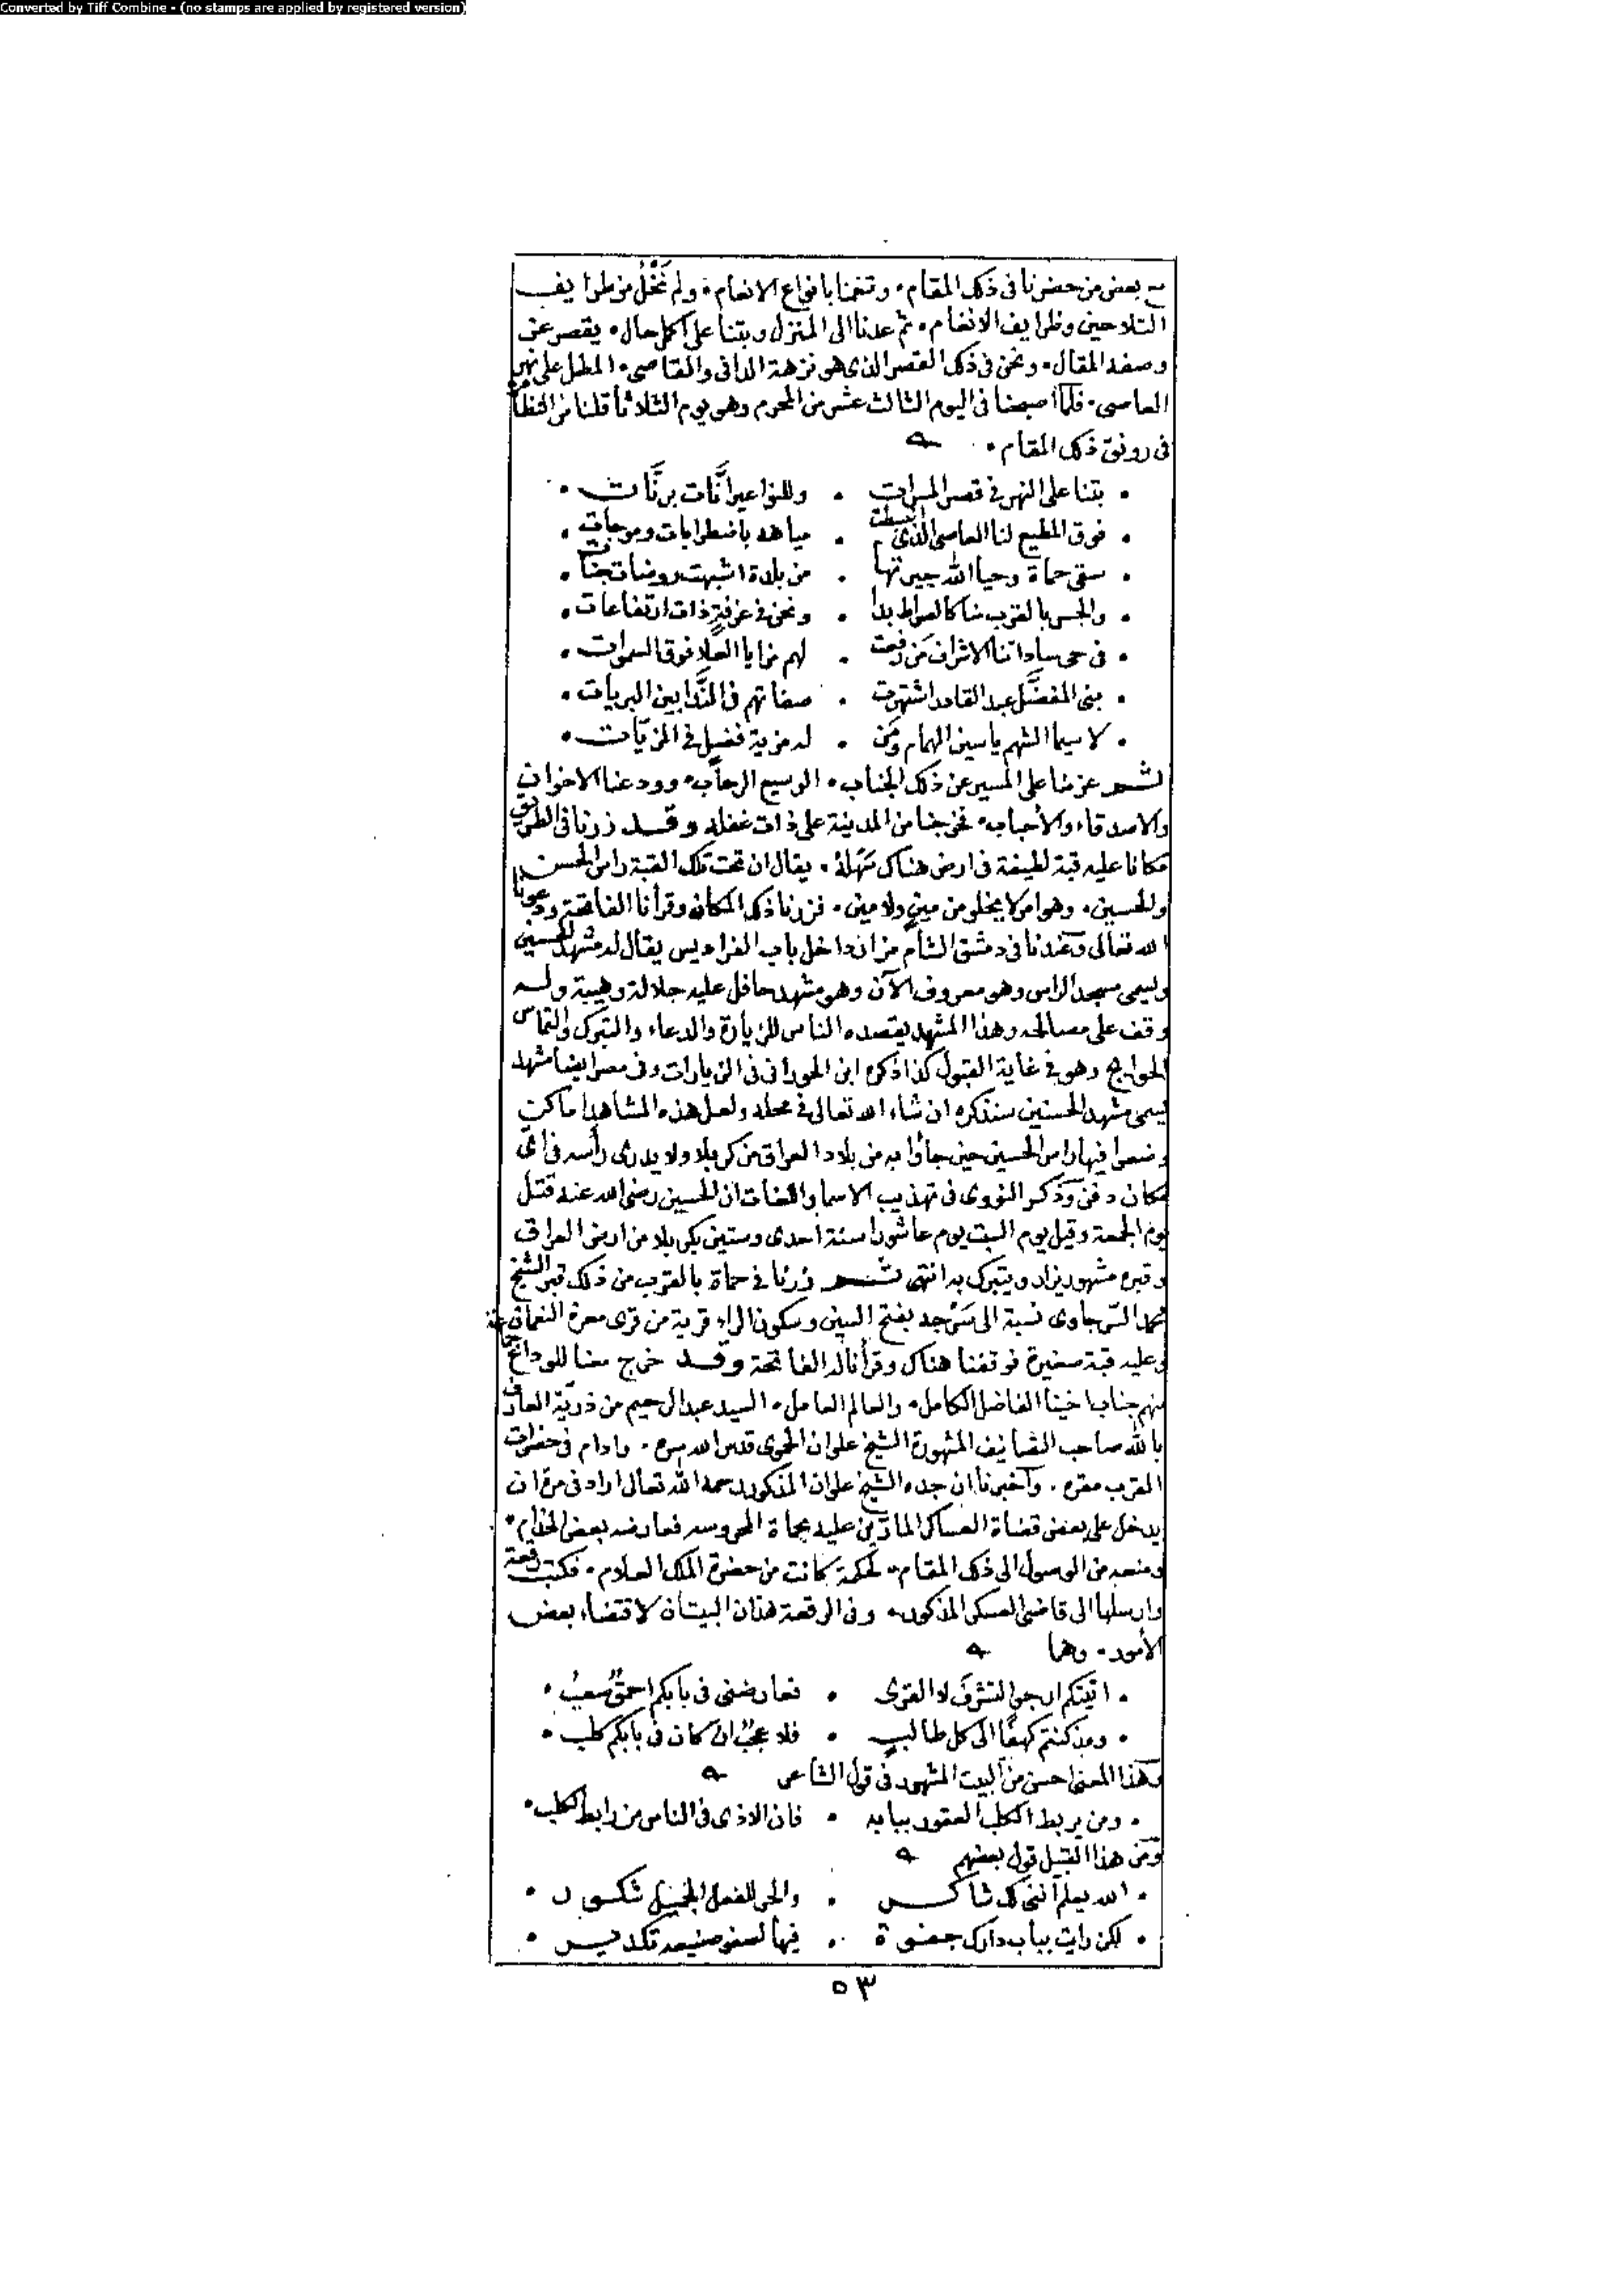 Converted by Tiff Combine - (no stamps are applied by registered version)
مع بعض من حضرنا فى ذلك المقام ٠ وتنعمنا بانواع الانعام ٠ ولم نَخْلُ من طرايف
التلاحين وظرايف الانغام ٠ ثم عدنا الى المنزل وبتنا على اكمل حال ٠ يقصر عن
وصفه المقال ٠ ونحن فى ذلك القصر الذى هو نزهة الدانى والقاصى ٠ المطل على نهر
العاصى ٠ فلما اصبحنا فى اليوم الثالث عشر من المحرم وهو يوم الثلاثا قلنا من النظام
فى رونق ذلك المقام ٠
٠ بتنا على النهر فى قصر المسرات ٠ وللنواعير انَّات برنَّات ٠
٠ فوق المطيع لنا العاصى الذى انبسطت ٠ مياهه باضطرابات وموجات ٠
٠ سقى حماة وحيا الله جيرتها ٠ من بلدة اشبهت روضات جنات ٠
٠ والجسر بالقرب منا كالصراط بدا ٠ ونحن فى غرفةٍ ذات ارتفاعات ٠
٠ فى حى ساداتنا الاشراف مَن رفعت ٠ لهم مزايا العلا فوق السموات ٠
٠ بنى المفضَّل عبد القادر اشتهرت ٠ صفاتهم فى النَّدا بين البريات ٠
٠ لا سيما الشهم ياسين الهمام ومَن ٠ له مزية فضل فى المزيّات ٠
ثم عزمنا على المسير عن ذلك الجناب ٠ الوسيع الرحاب ٠ وودعنا الاخوان
والاصدقاء والأحباب ٠ فخرجنا من المدينة على ذات غفله وقد زرنا فى الطريق
مكانا عليه قبة لطيفة فى ارض هناك سَهْلة ٠ يقال ان تحت تلك القبة راس الحسن
والحسين ٠ وهو امر لا يخلو من مينٍ ولا مين ٠ فزرنا ذلك المكان وقرأنا الفاتحة ودعونا
الله تعالى وعندنا فى دمشق الشام مزار داخل باب الفراديس يقال له مشهد الحسين
ويسمى مسجد الراس وهو معروف الآن وهو مشهد حافل عليه جلالة وهيبة وله
وقف على مصالحه وهذا المشهد يقصده الناس للزيارة والدعاء والتبرك والتماس
الحوايج وهو فى غاية القبول كذا ذكره ابن الحورانى فى الزيارات وفى مصر ايضا مشهد
يسمى مشهد الحسنين سنذكره ان شاء الله تعالى فى محله ولعل هذه المشاهد اماكن
وضعوا فيها راس الحسين حين جاؤا به من بلاد العراق من كربلا ولا يدرى رأسه فى اىّ
مكان دفن وذكر النووى فى تهذيب الاسما واللغات ان الحسين رضى الله عنه قتل
يوم الجمعة وقيل يوم السبت يوم عاشورا سنة احدى وستين بكربلا من ارض العراق
وقبره مشهور يزار ويتبرك به انتهى ثم زرنا فى حماة بالقرب من ذلك قبر الشيخ
محمد السرجاوى نسبة الى سَرْجه بفتح السين وسكون الراء قرية من قرى معرة النعمان
وعليه قبة صغيرة فوقفنا هناك وقرأنا له الفاتحة وقد خرج معنا للوداع جماعة
منهم جناب اخينا الفاضل الكامل ٠ والعالم العامل ٠ السيد عبد الرحيم من ذريّة العارف
بالله صاحب التصانيف المشهورة الشيخ علوان الحموى قدس الله سره ٠ وادام فى حضرات
القرب مقره ٠ وأخبرنا ان جده الشيخ علوان المذكور رحمه الله تعالى اراد فى مرة ان
يدخل على بعض قضاة العساكر المارّين عليه بحماة المحروسه فعارضه بعض الخدام ٠
ومنعه من الوصول الى ذلك المقام ٠ لحكمة كانت من حضرة الملك العلام ٠ فكتب رقعة
وارسلها الى قاضى العسكر المذكور ٠ وفى الرقعة هذان البيتان لاقتضاء بعض
الأمور ٠ وهما
٠ اتيتكم ارجو التشرف لا القرى ٠ فعارضنى فى بابكم احمقٌ صعبُ ٠
٠ ومذ كنتم كهفًا الى كل طالبٍ ٠ فلا عجبٌ ان كان فى بابكم كلب ٠
وهذا المعنى احسن من البيت المشهور فى قول الشاعر
٠ ومن يربط الكلب العقور ببابه ٠ فان الاذى فى الناس من رابط الكلب ٠
ومن هذا القبيل قول بعضهم
٠ الله يعلم أننى لك شاكر ٠ والحر للفعل الجميل شكور ٠
٠ لكن رايت بباب دارك جفوة ٠ فيها لصفو صنيعه تكدير ٠
٥٣